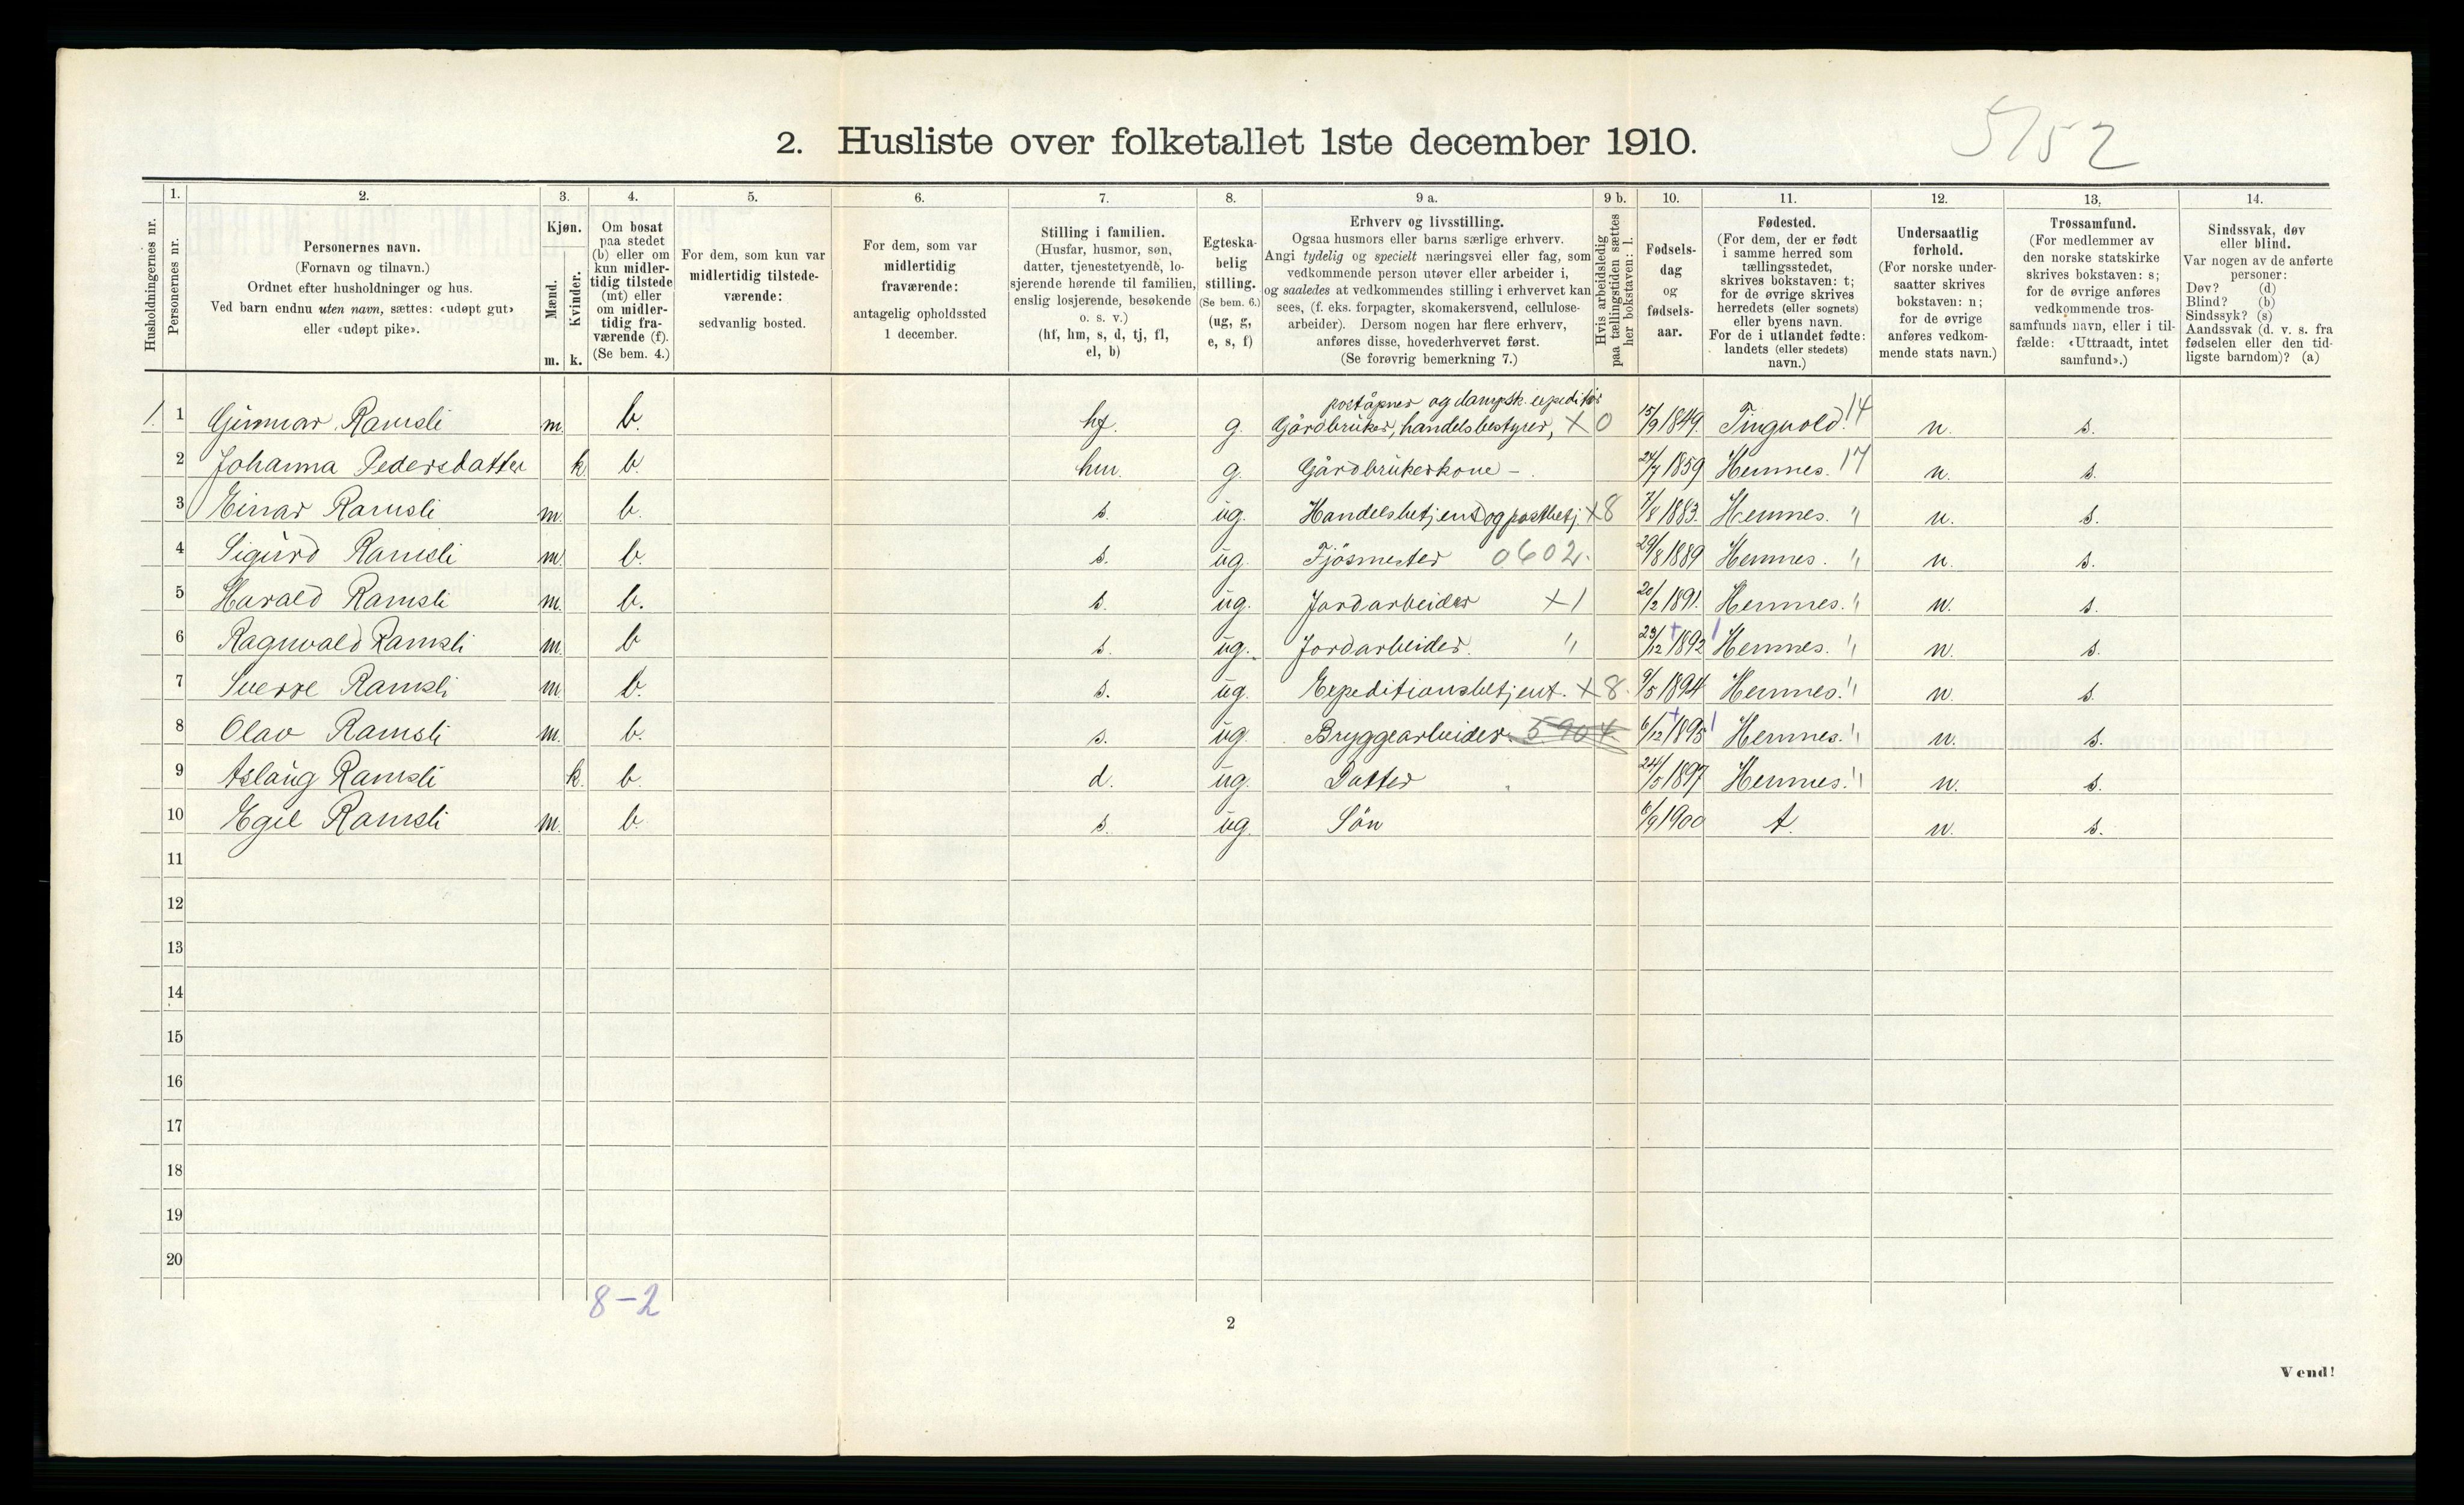 5/52
2. Husliste over folketallet 1ste december 1910.
Husholdningernes nr.
1.
Personernes nr.
2.
Personernes navn.
(Fornavn og tilnavn.)
Ordnet efter husholdninger og hus.
Ved barn endnu uten navn, sættes: «udøpt gut»
eller «udøpt pike».
3.
Kjøn.
Mænd.
Kvinder.
m. k.
4.
Om bosat
paa stedet
(b) eller om
kun midler-
tidig tilstede
(mt) eller
om midler-
tidig fra-
værende (f).
(Se bem. 4.)
5.
For dem, som kun var
midlertidig tilstede-
værende:
sedvanlig bosted.
6.
For dem, som var
midlertidig
fraværende:
antagelig opholdssted
1 december.
7.
Stilling i familien.
(Husfar, husmor, søn,
datter, tjenestetyende, lo-
sjerende hørende til familien,
enslig losjerende, besøkende
o. s. v.)
(hf, hm, s, d, tj, fl,
el, b)
8.
Egteska-
belig
stilling.
(Se bem. 6.)
(ug, g,
e, s, f)
9 a.
Erhverv og livsstilling.
Ogsaa husmors eller barns særlige erhverv.
Angi tydelig og specielt næringsvei eller fag, som
vedkommende person utøver eller arbeider i,
og saaledes at vedkommendes stilling i erhvervet kan
sees, (f. eks. forpagter, skomakersvend, cellulose-
arbeider). Dersom nogen har flere erhverv,
anføres disse, hovederhvervet først.
(Se forøvrig bemerkning 7.)
9 b.
Hvis arbeidsledig
paa tællingstiden sættes
her bokstaven: l.
10.
Fødsels-
dag
og
fødsels-
aar.
11.
Fødested.
(For dem, der er født
i samme herred som
tællingsstedet,
skrives bokstaven: t;
for de øvrige skrives
herredets (eller sognets)
eller byens navn.
For de i utlandet fødte:
landets (eller stedets)
navn.)
12.
Undersaatlig
forhold.
(For norske under-
saatter skrives
bokstaven: n;
for de øvrige
anføres vedkom-
mende stats navn.)
13.
Trossamfund.
(For medlemmer av
den norske statskirke
skrives bokstaven: s;
for de øvrige anføres
vedkommende tros-
samfunds navn, eller i til-
fælde: «Uttraadt, intet
samfund».)
14.
Sindssvak, døv
eller blind.
Var nogen av de anførte
personer:
Døv? (d)
Blind? (b)
Sindssyk? (s)
Aandssvak (d. v. s. fra
fødselen eller den tid-
ligste barndom)? (a)
poståpner og dampsk. expeditør
1. 1 Gunnar Ramsli m. b. hf. g. Gårdbruker, handelsbestyrer, X 0 15/9 1849. Tingvold. 14 n. s.
2 Johanna Pedersdatter k. b. hm. g. Gårdbrukerkone - 24/7 1859 Hemnes. 17 n. s.
3 Einar Ramsli m. b. s. ug. Handelsbetjent og postbetj. X8 7/8 1883. Hemnes. " n. s.
4 Sigurd Ramsli m. b. s. ug. Fjøsmester 0602. 29/8 1889 Hemnes. " n. s.
5 Harald Ramsli m. b. s. ug. Jordarbeider X1 20/2 1891. Hemnes. " n. s.
6 Ragnvald Ramsli m. b s. ug. Jordarbeider. " 23/12 1892 Hemnes. " n. s.
7 Sverre Ramsli m. b. s. ug. Expeditionsbetjent. X8. 9/5 1894 Hemnes. " n. s.
8 Olav Ramsli m. b. s. ug. Bryggearbeider. 5904. 6/12 1895 Hemnes. " n. s.
9 Aslaug Ramsli k. b. d. ug. Datter 24/5 1897 Hemnes. " n. s.
10 Egil Ramsli m. b. s. ug. Sön 6/9 1900 t. n. s.
11
12
13
14
15
16
17
18
19
20
8-2
2
Vend!